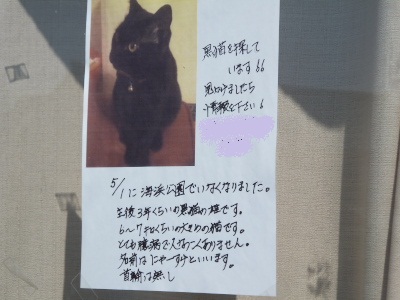 黒猫を探して
います
見かけましたら
情報を下さい
5/1に海浜公園でいなくなりました。
生後3年くらいの黒猫の雄です。
6〜7キロくらいの大きめの猫です。
とても臆病で人なつこくありません。
名前はにゃーすけといいます。
首輪は無し